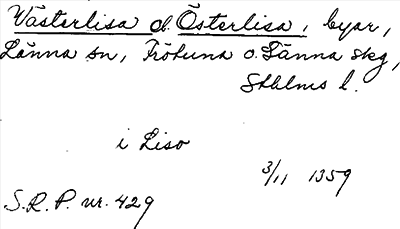 Västerlisa o. Österlisa, byar,
Länna sn, Frötuna o. Länna skg,
Sthlms l.
i Liso
3/11 1359
S.R.P. nr. 429